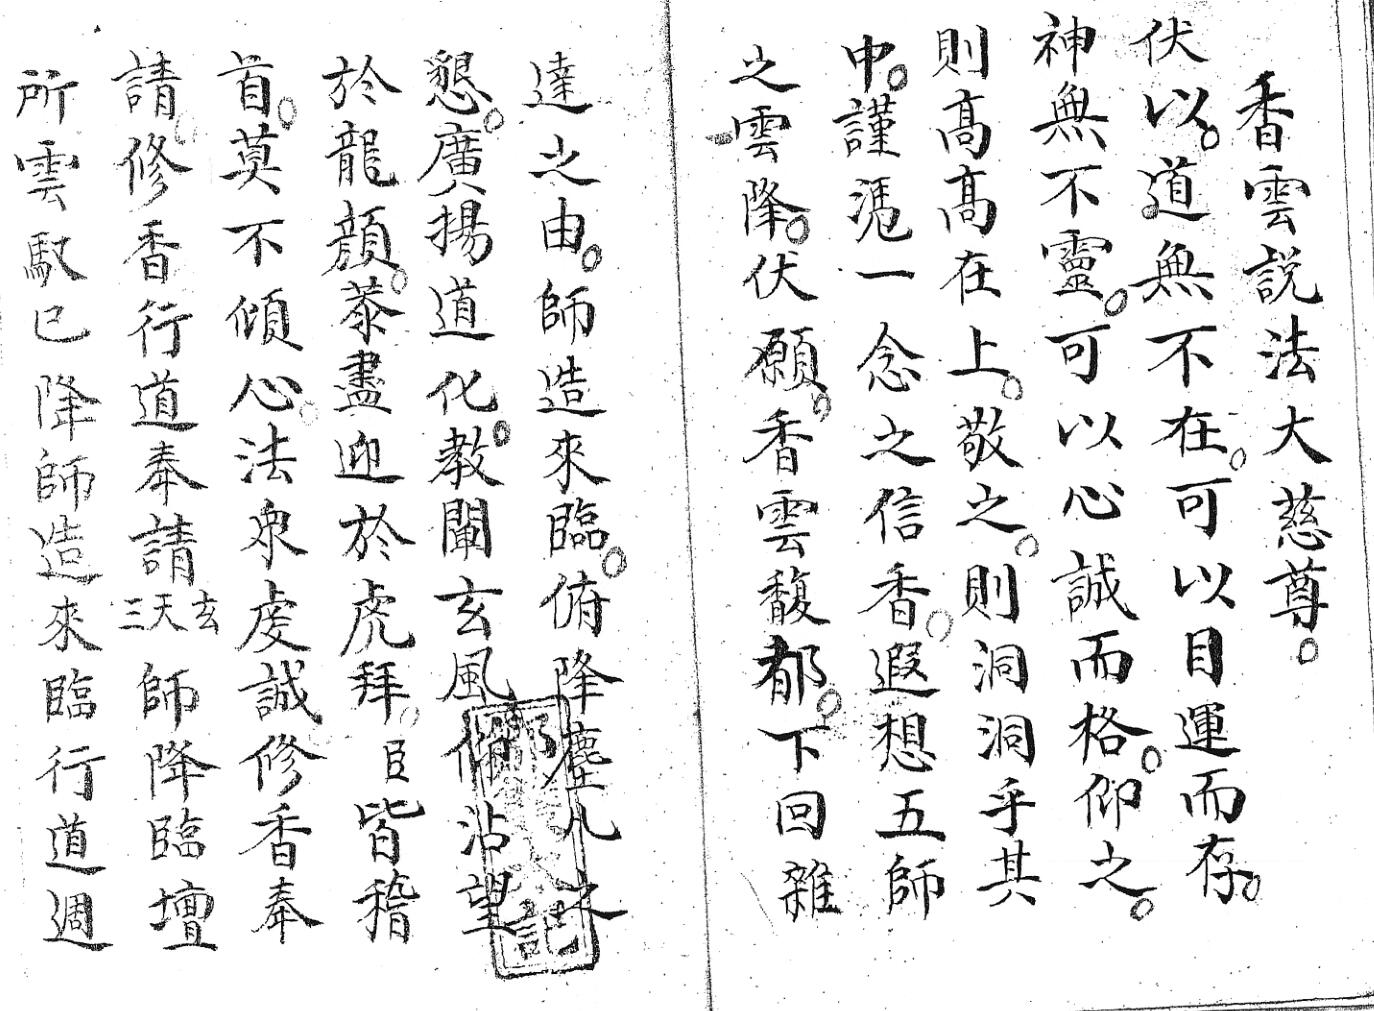 香雲説法大慈尊。
伏以。道無不在。可以目運而存。
神無不靈。可以心誠而格。仰之。
則髙髙在上。敬之。則洞洞乎其
中。謹馮一念之信香。遐想五師
之雲降。伏願。香雲馥郁。下回雜
達之由。師造來臨。俯降塵凡之
懇。廣揚道化。教闡玄風。俯沾望
於龍顔。恭盡迎於虎拜。臣皆稽
首。莫不傾心。法衆虔誠修香奉
請。修香行道奉請玄天三師降臨壇
所雲馭已降師造來臨行道週